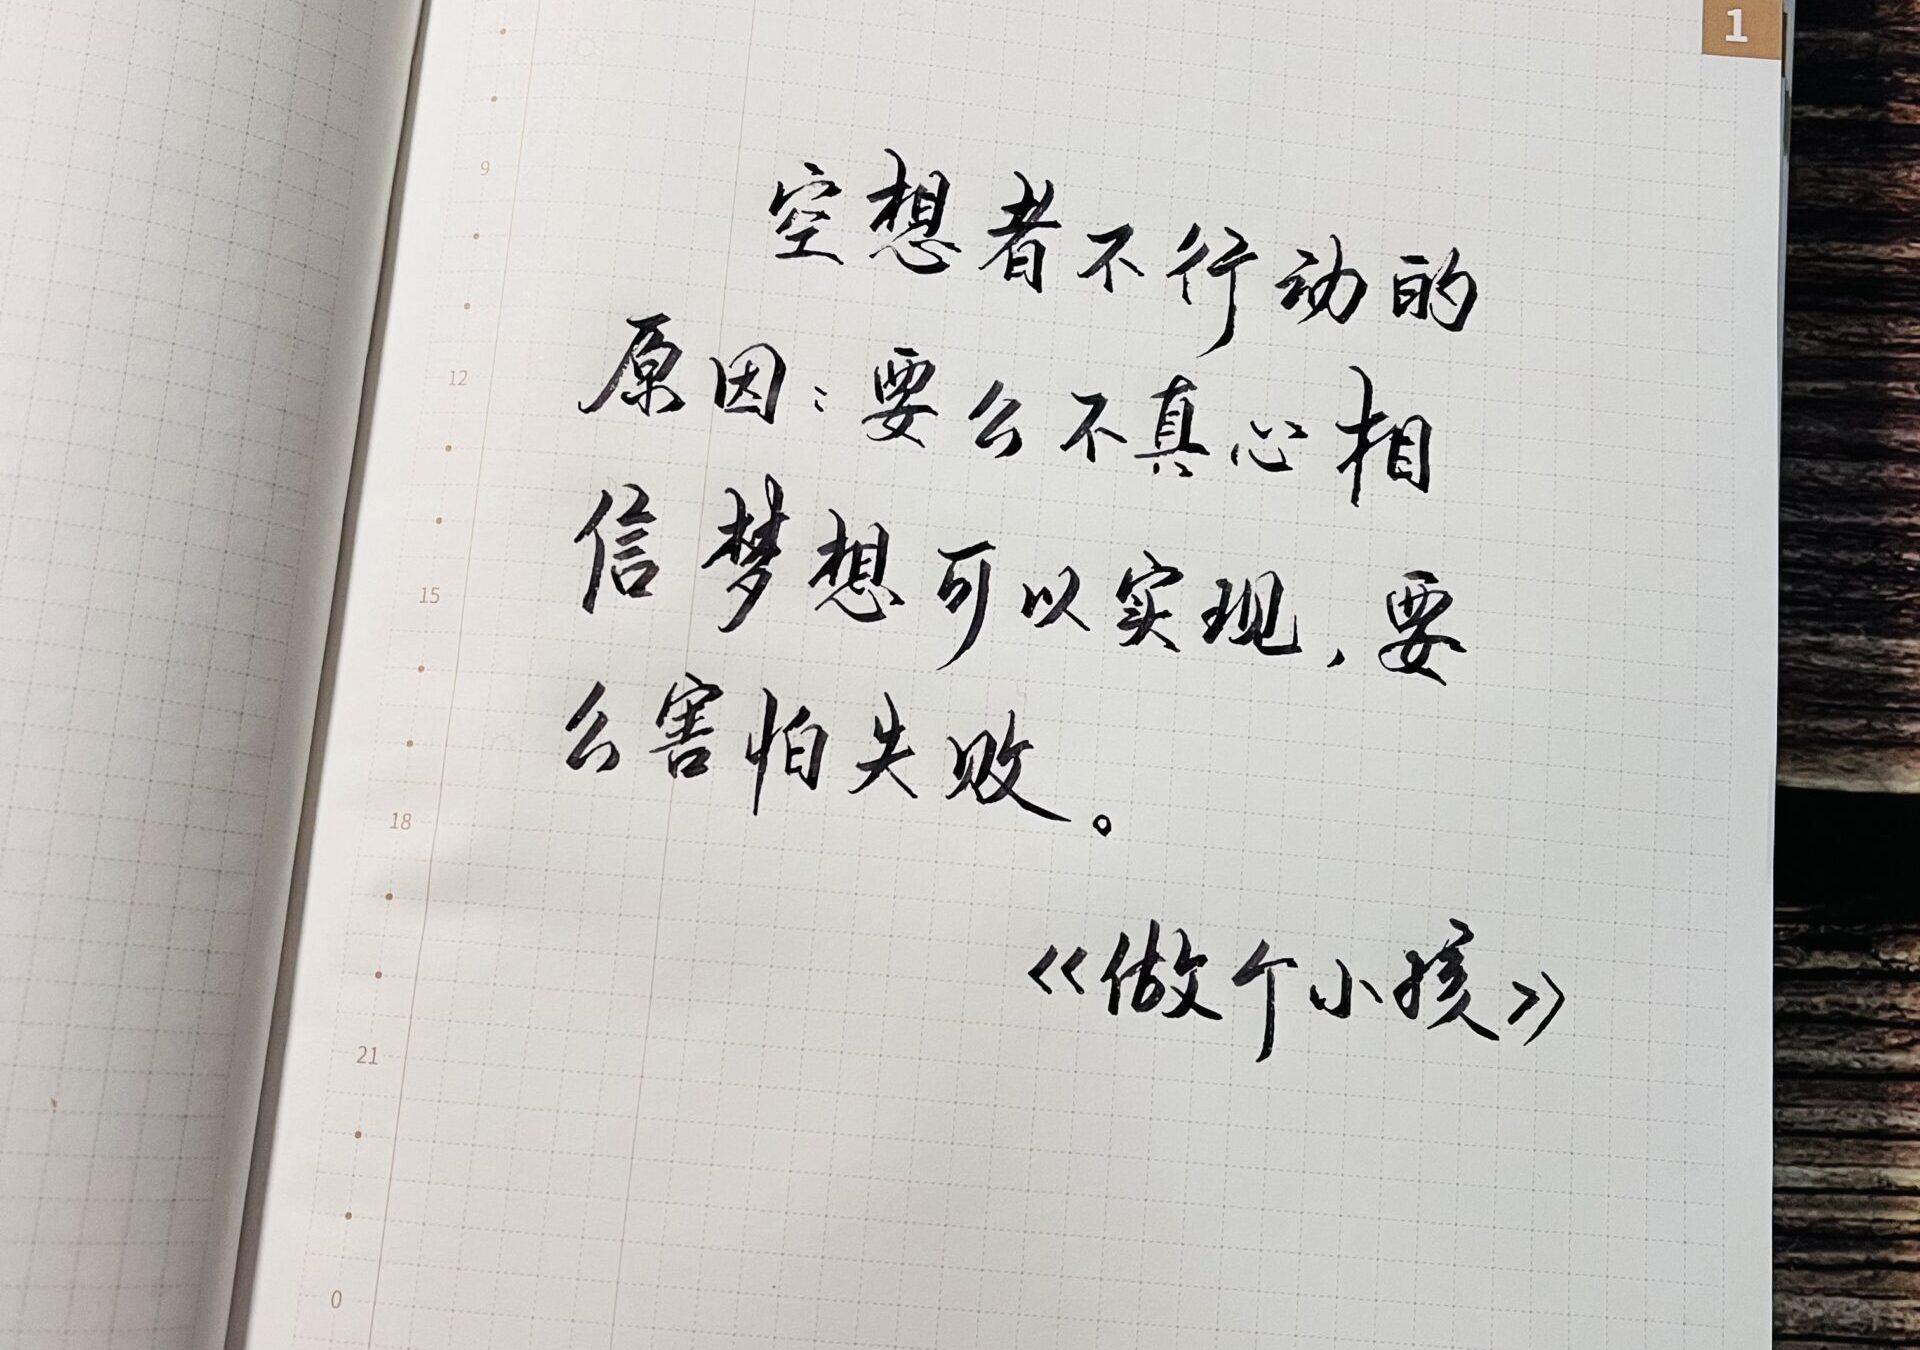 1
空想者不行动的
9
原因：要么不真心相
12
信梦想可以实现，要
15
么害怕失败。
18
《做个小孩》
21
0